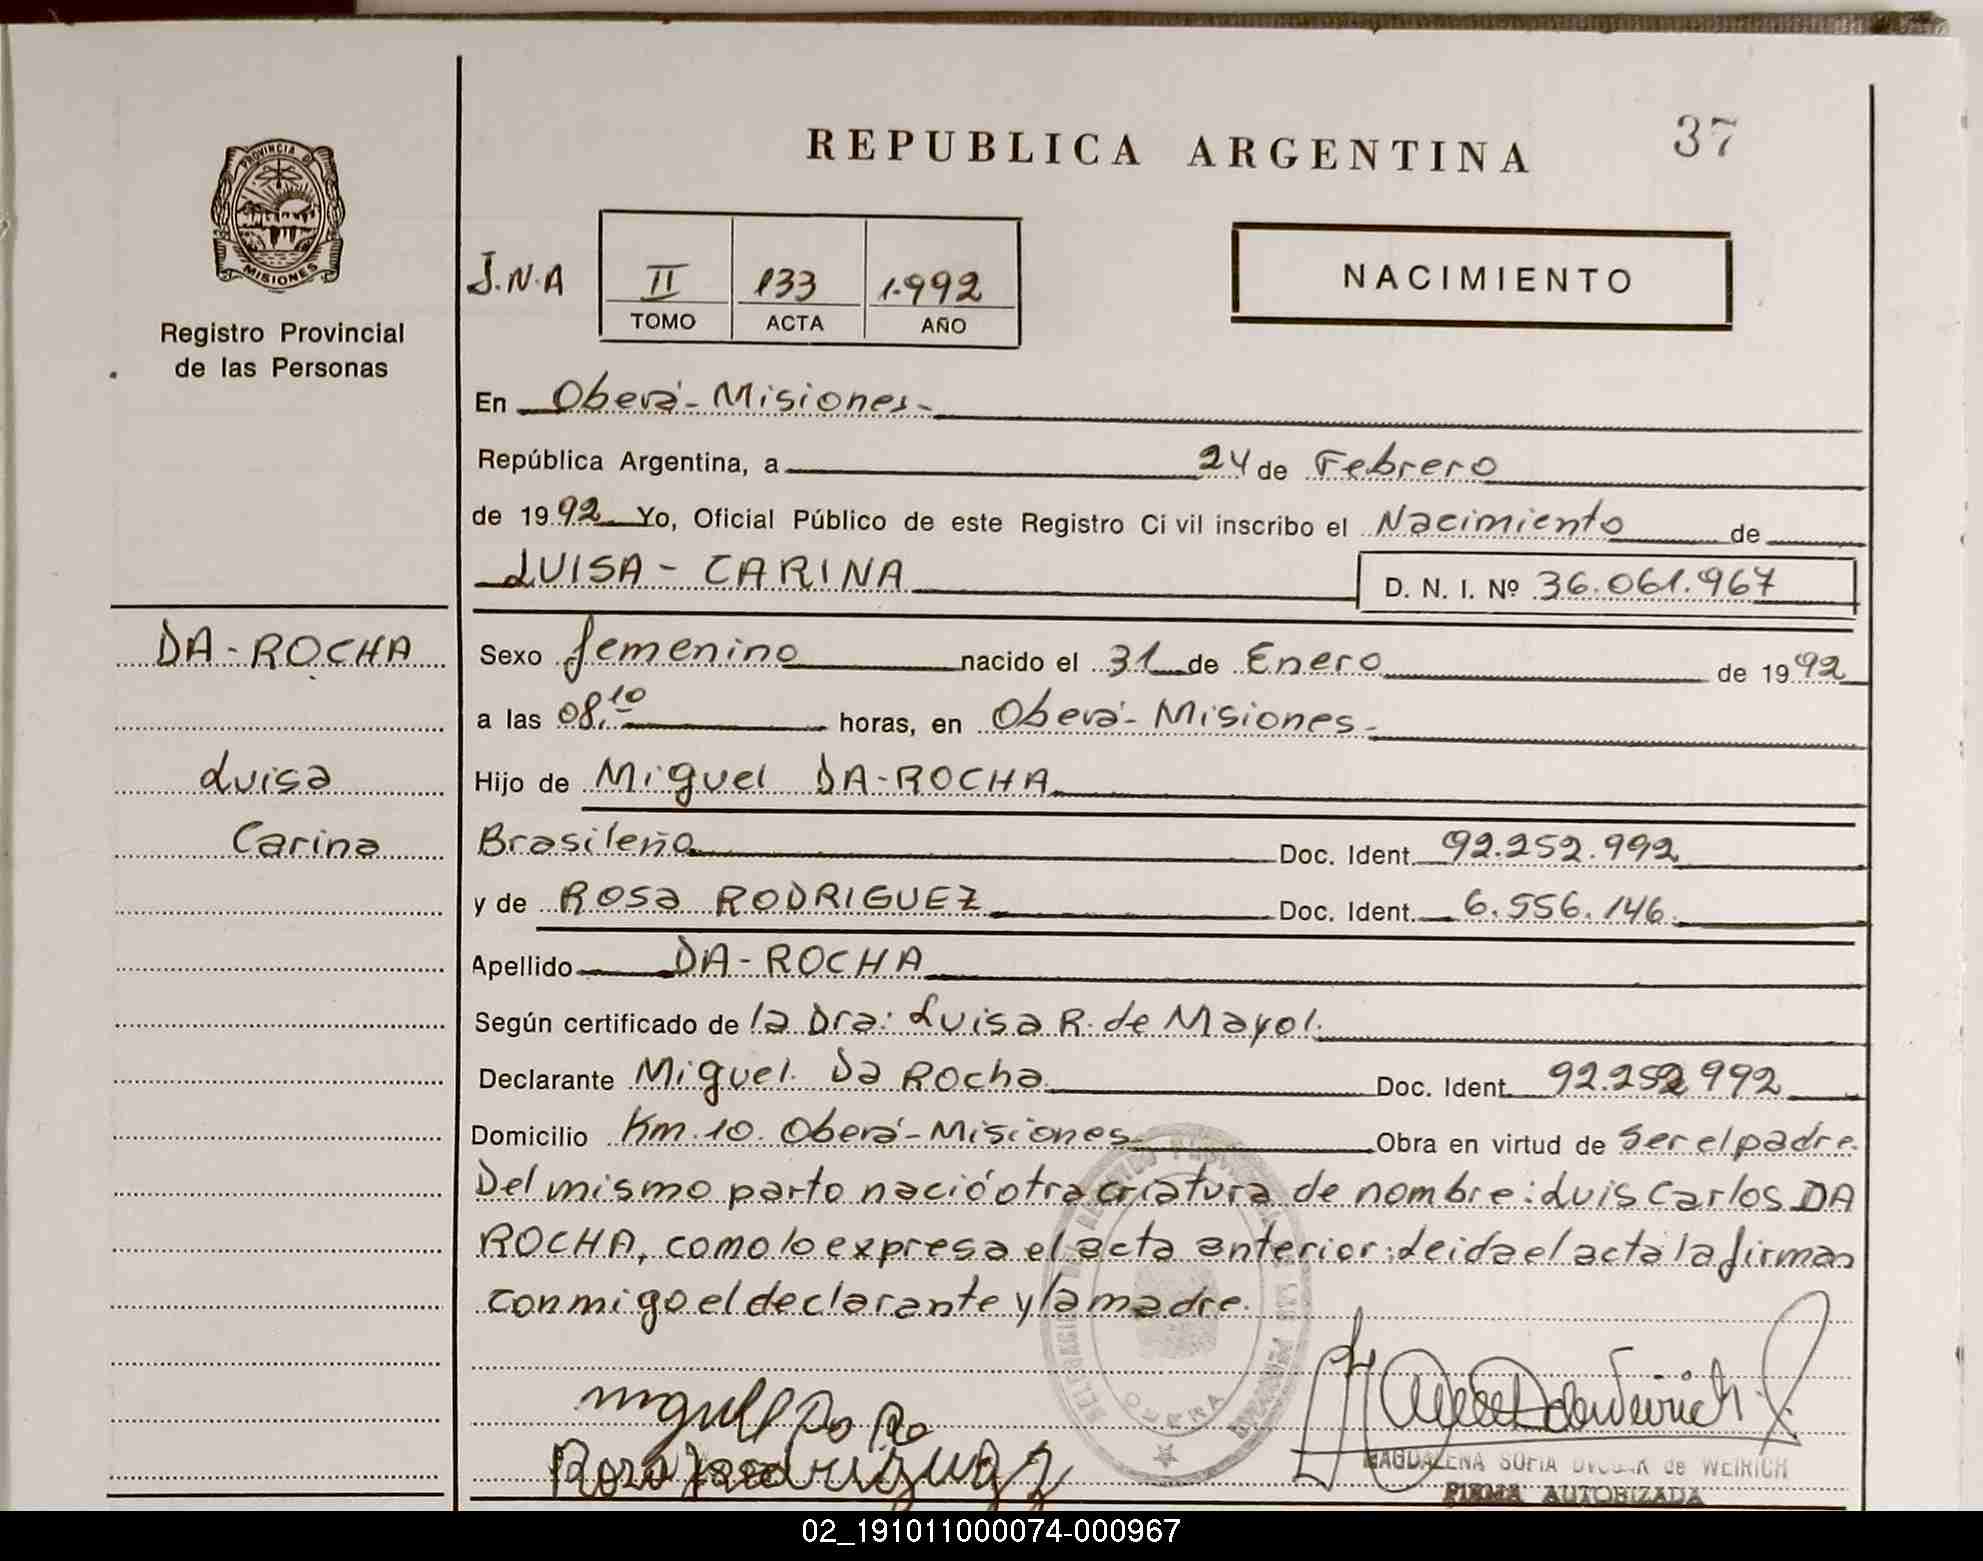 REPUBLICA ARGENTINA
37
PROVINCIA DE
MISIONES
Registro Provincial
de las Personas
J.N.A
II
133
1.992
TOMO
ACTA
AÑO
NACIMIENTO
En Oberá - Misiones -
República Argentina, a 24 de Febrero
de 1992 Yo, Oficial Público de este Registro Civil inscribo el Nacimiento de
LUISA - CARINA
D. N. I. Nº 36.061.967
DA-ROCHA
Luisa
Carina
Sexo femenino nacido el 31 de Enero de 1992
a las 08.10 horas, en Oberá - Misiones -
Hijo de Miguel DA-ROCHA
Brasileño Doc. Ident. 92.252.992
y de Rosa RODRIGUEZ Doc. Ident. 6.556.146
Apellido DA-ROCHA
Según certificado de la Dra: Luisa R. de Mayol.
Declarante Miguel Da Rocha Doc. Ident. 92.252 992
Domicilio Km. 10. Oberá - Misiones Obra en virtud de ser el padre.
Del mismo parto nació otra criatura de nombre: Luis Carlos DA
ROCHA, como lo expresa el acta anterior: Leida el acta la firman
conmigo el declarante y la madre.
MAGDALENA SOFIA de WEIRICH
FIRMA AUTORIZADA
02_191011000074-000967